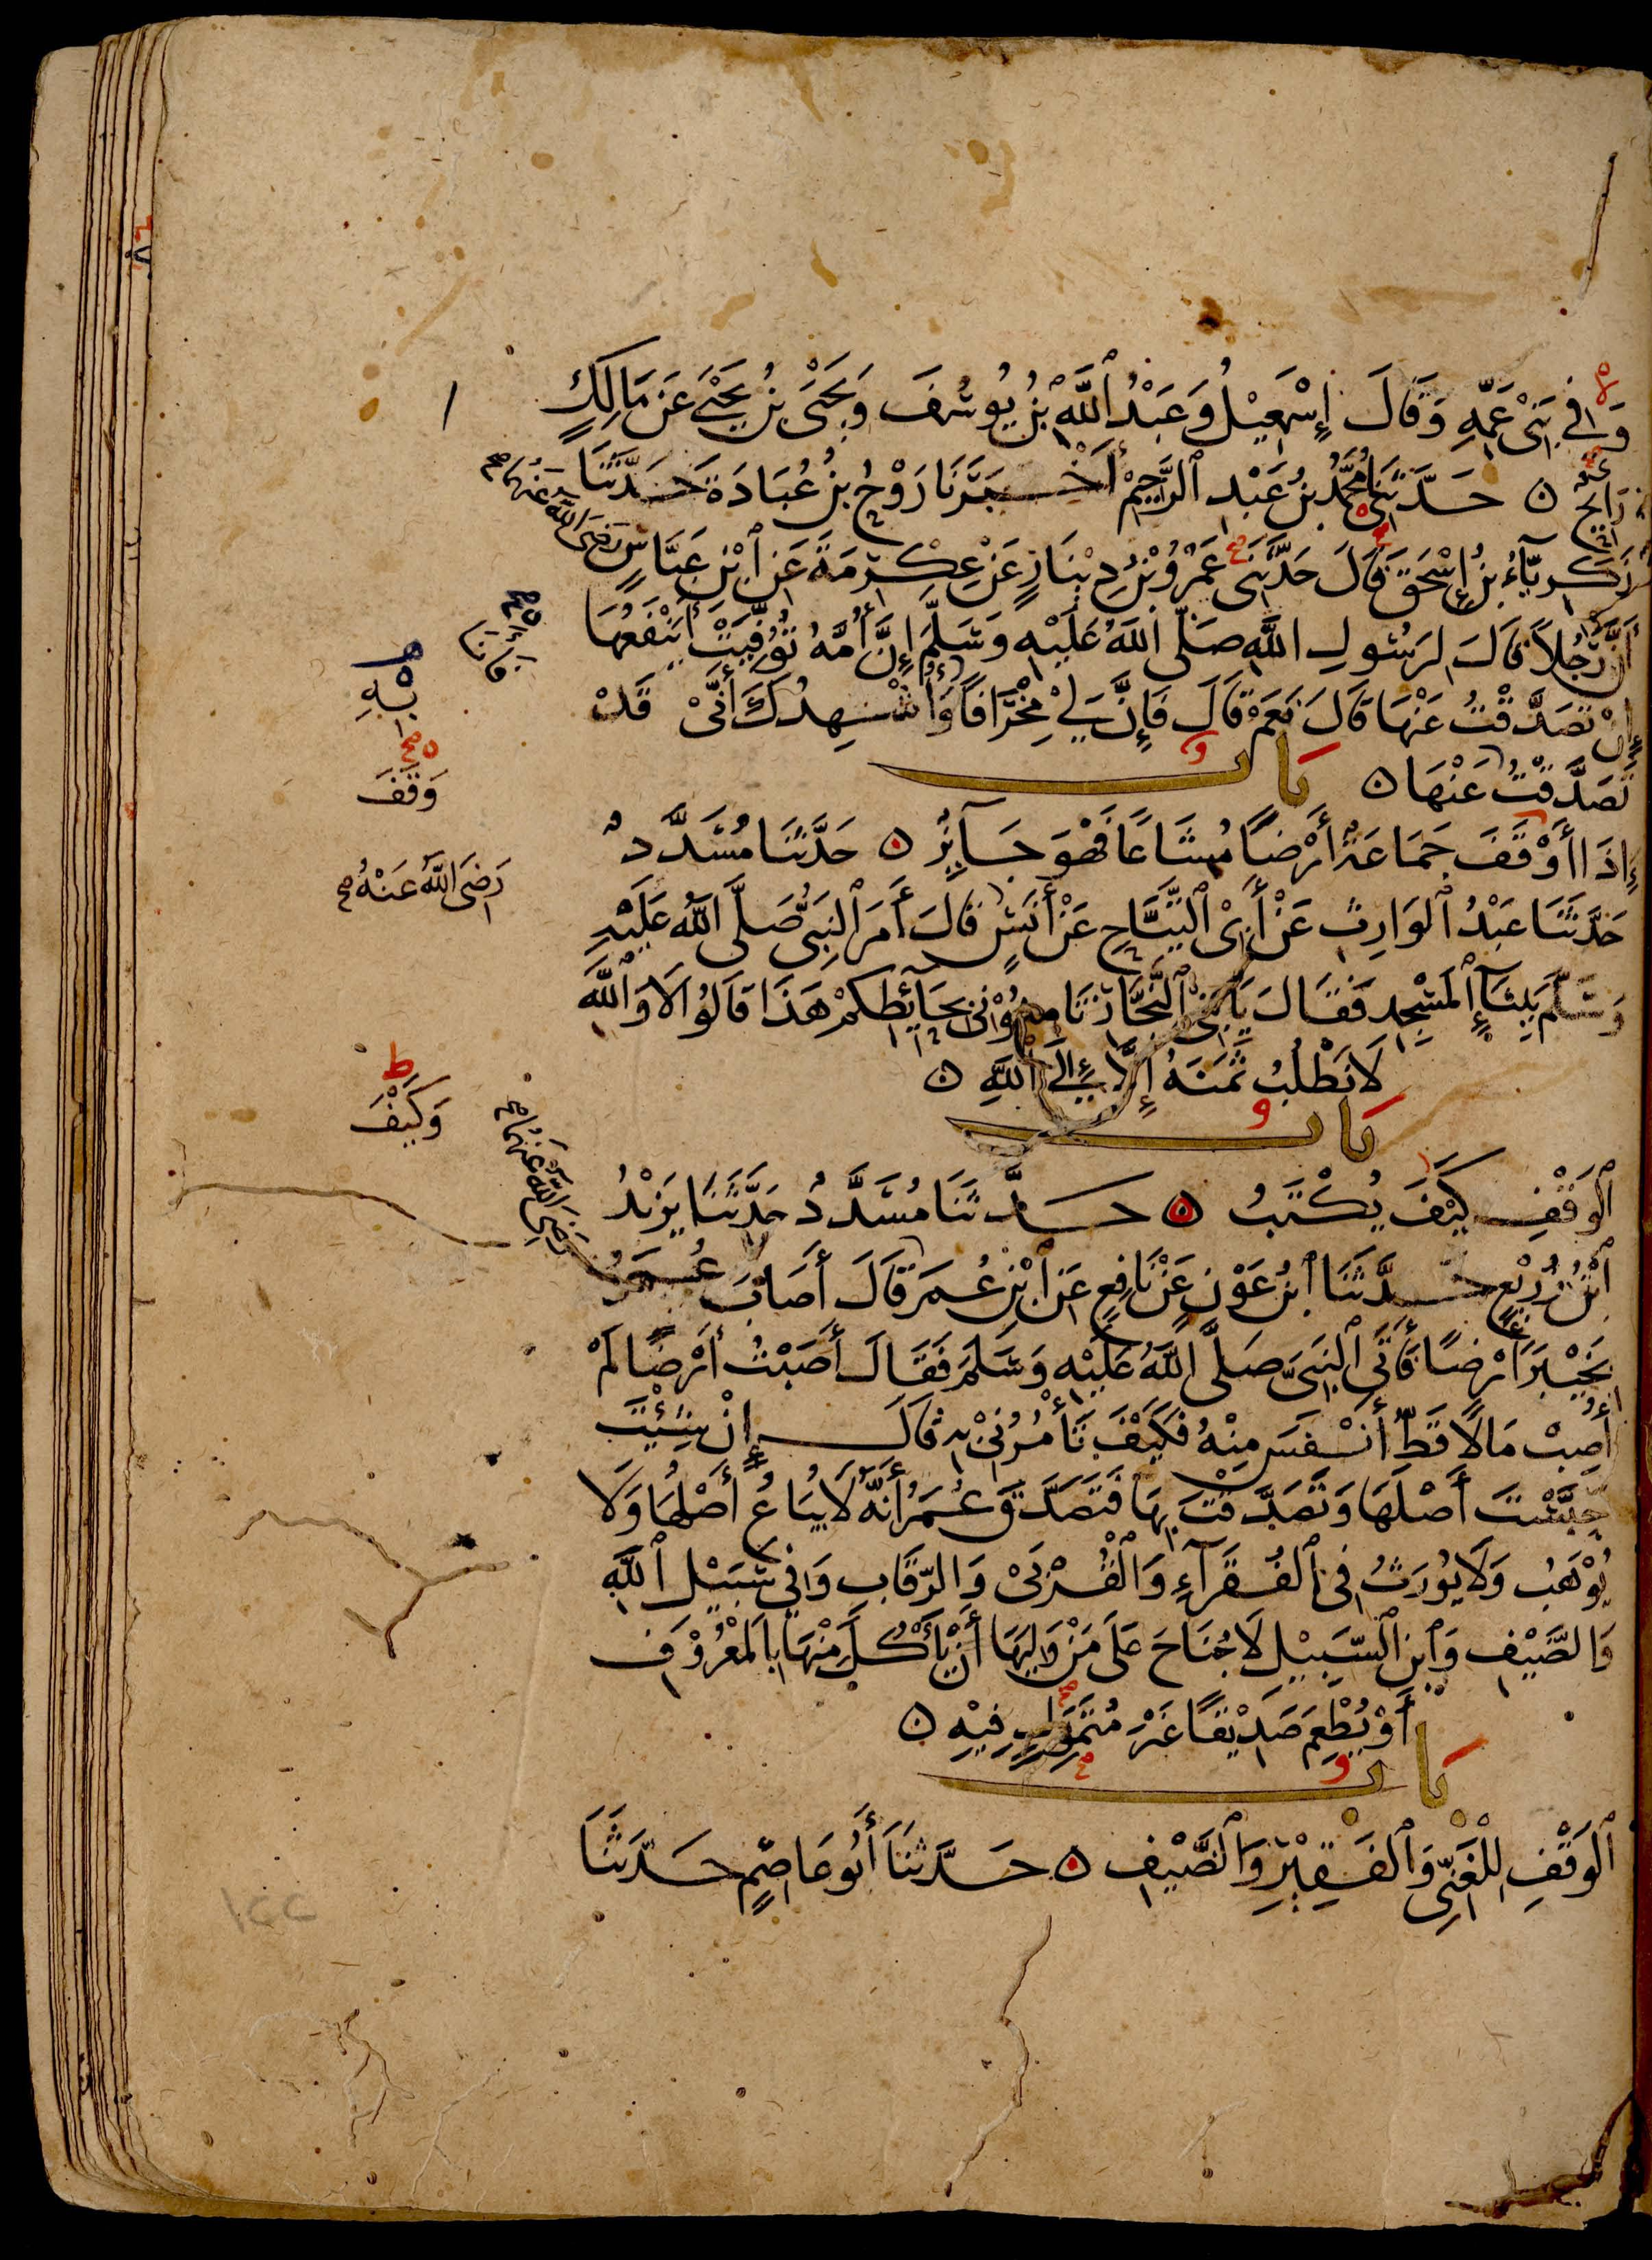 وَفِي بَنِي عَمِّهِ وَقَالَ إِسْمَعِيْلُ وَعَبْدُ ٱللَّهِ بْنُ يُوسُفَ وَيَحْيَى بْنُ يَحْيَى عَنْ مَالِكٍ
رَايِحٌ ه حَدَّثَنِي مُحَمَّدُ بْنُ عَبْدِ ٱلرَّحِيْمِ أَخْبَرَنَا رَوْحُ بْنُ عُبَادَةَ حَدَّثَنَا
رَضِيَ اللَّهُ عَنْهُمَا صح
زَكَرِيَّاءُ بْنُ إِسْحَقَ قَالَ حَدَّثَنِي عَمْرُو بْنُ دِيْنَارٍ عَنْ عِكْرِمَةَ عَنِ ٱبْنِ عَبَّاسٍ
أَنَّ رَجُلًا قَالَ لِرَسُولِ اللَّهِ صَلَّى اللَّهُ عَلَيْهِ وَسَلَّمَ إِنَّ أُمَّهُ تُوُفِّيَتْ أَيَنْفَعُهَا
فَأَنَا
إِنْ تَصَدَّقْتُ عَنْهَا قَالَ نَعَمْ قَالَ فَإِنَّ لِي مِخْرَافًا وَأُشْهِدُكَ أَنِّي قَدْ
بِهِ
تَصَدَّقْتُ عَنْهَا ه بَاب
وَقَفَ
إِذَا أَوْقَفَ جَمَاعَةٌ أَرْضًا مُشَاعًا فَهُوَ جَآئِزٌ ه حَدَّثَنَا مُسَدَّدٌ
رَضِيَ اللَّهُ عَنْهُ صح
حَدَّثَنَا عَبْدُ ٱلْوَارِثِ عَنْ أَبِي ٱلتَّيَّاحِ عَنْ أَنَسٍ قَالَ أَمَرَ ٱلنَّبِيُّ صَلَّى اللَّهُ عَلَيْهِ
وَسَلَّمَ بِبِنَآءِ ٱلْمَسْجِدِ فَقَالَ يَا بَنِي ٱلنَّجَّارِ ثَامِنُوْنِي بِحَآئِطِكُمْ هَذَا قَالُوا لَا وَٱللَّهِ
لَا نَطْلُبُ ثَمَنَهُ إِلَّا إِلَى ٱللَّهِ ه
بَاب
وَكَيْفَ
ٱلْوَقْفِ كَيْفَ يُكْتَبُ ه حَدَّثَنَا مُسَدَّدٌ حَدَّثَنَا يَزِيْدُ
رَضِيَ اللَّهُ عَنْهُمَا صح
ٱبْنُ زُرَيْعٍ حَدَّثَنَا ٱبْنُ عَوْنٍ عَنْ نَافِعٍ عَنِ ٱبْنِ عُمَرَ قَالَ أَصَابَ عُمَرُ
بِخَيْبَرَ أَرْضًا فَأَتَى ٱلنَّبِيَّ صَلَّى اللَّهُ عَلَيْهِ وَسَلَّمَ فَقَالَ أَصَبْتُ أَرْضًا لَمْ
أُصِبْ مَالًا قَطُّ أَنْفَسَ مِنْهُ فَكَيْفَ تَأْمُرُنِي بِهِ قَالَ إِنْ شِئْتَ
حَبَّسْتَ أَصْلَهَا وَتَصَدَّقْتَ بِهَا فَتَصَدَّقَ عُمَرُ أَنَّهُ لَا يُبَاعُ أَصْلُهَا وَلَا
يُوْهَبُ وَلَا يُوْرَثُ فِي ٱلْفُقَرَآءِ وَالْقُرْبَى وَالرِّقَابِ وَفِي سَبِيْلِ ٱللَّهِ
وَالضَّيْفِ وَٱبْنِ ٱلسَّبِيْلِ لَا جُنَاحَ عَلَى مَنْ وَلِيَهَا أَنْ يَأْكُلَ مِنْهَا بِالْمَعْرُوْفِ
أَوْ يُطْعِمَ صَدِيْقًا غَيْرَ مُتَمَوِّلٍ فِيْهِ ه
بَاب
ٱلْوَقْفِ لِلْغَنِيِّ وَٱلْفَقِيْرِ وَٱلضَّيْفِ ه حَدَّثَنَا أَبُو عَاصِمٍ حَدَّثَنَا